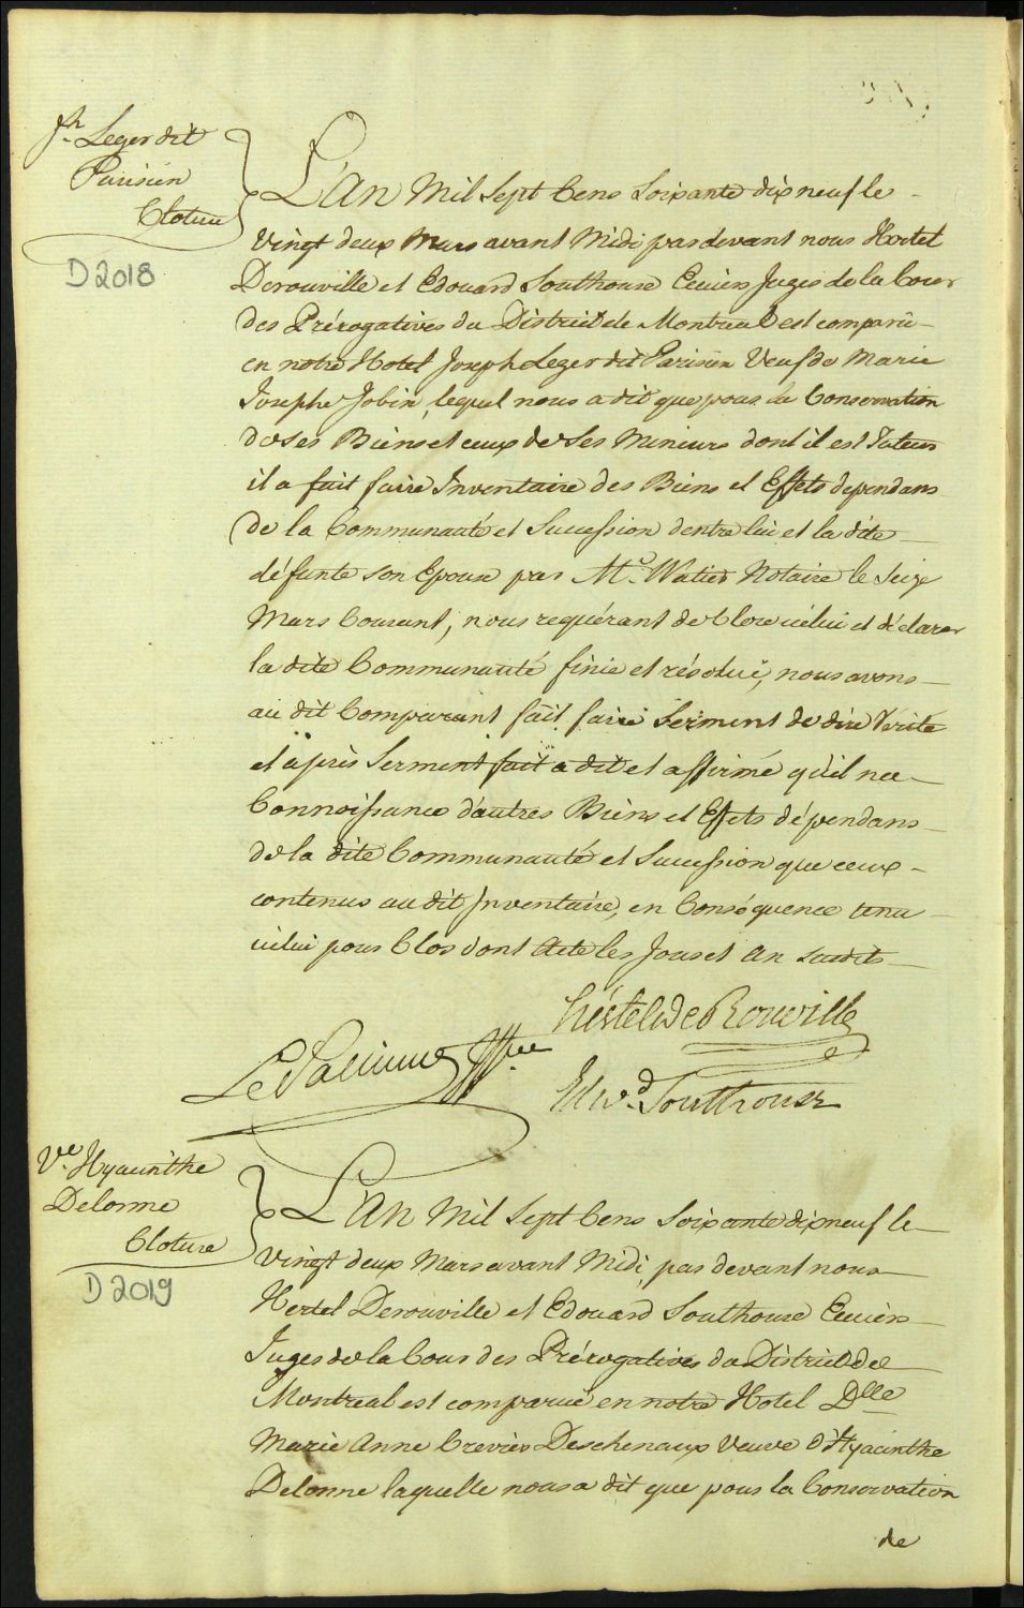 Jh. Leger dit
Parisien
Cloture
D2018
L'An Mil Sept Cens Soixante dix neuf le
Vingt deux Mars avant Midi pardevant nous Hertel
Derouville et Edouard Southouse Ecuiers Juges de la Cour
des Prérogatives du District de Montreal est comparû
en notre Hotel Joseph Leger dit Parisien Veuf de Marie
Josephe Jobin, lequel nous a dit que pour la Conservation
de ses Biens et ceux de Ses Mineurs dont il est Tuteur
il a fait faire Inventaire des Biens et Effets dependans
de la Communauté et Succession dentre lui et la dite
défunte son Epouse par Me. Watier Notaire le Seize
Mars Courant, nous requérant de Clore icelui et déclarer
la dite Communauté finie et résoluë, nous avons
au dit Comparant fait faire Serment de dire Vérité
et après Serment fait a dit et affirmé qu'il n'a
Connoissance d'autres Biens et Effets dépendans
de la dite Communauté et Succession que ceux
contenus au dit Inventaire, en Conséquence tenu
icelui pour Clos dont Acte les Jour et An susdits
Hertel De Rouville
LePallieur Gffier
Edwd. Southouse
Ve. Hyacinthe
Delorme
Cloture
D2019
L'An Mil Sept Cens Soixante dix neuf le
Vingt deux Mars avant Midi, par devant nous
Hertel Derouville et Edouard Southouse Ecuiers
Juges de la Cour des Prérogatives du District de
Montreal est comparuë en notre Hotel Dlle
Marie Anne Crevier Deschenaux Veuve d'Hyacinthe
Delorme laquelle nous a dit que pour la Conservation
de